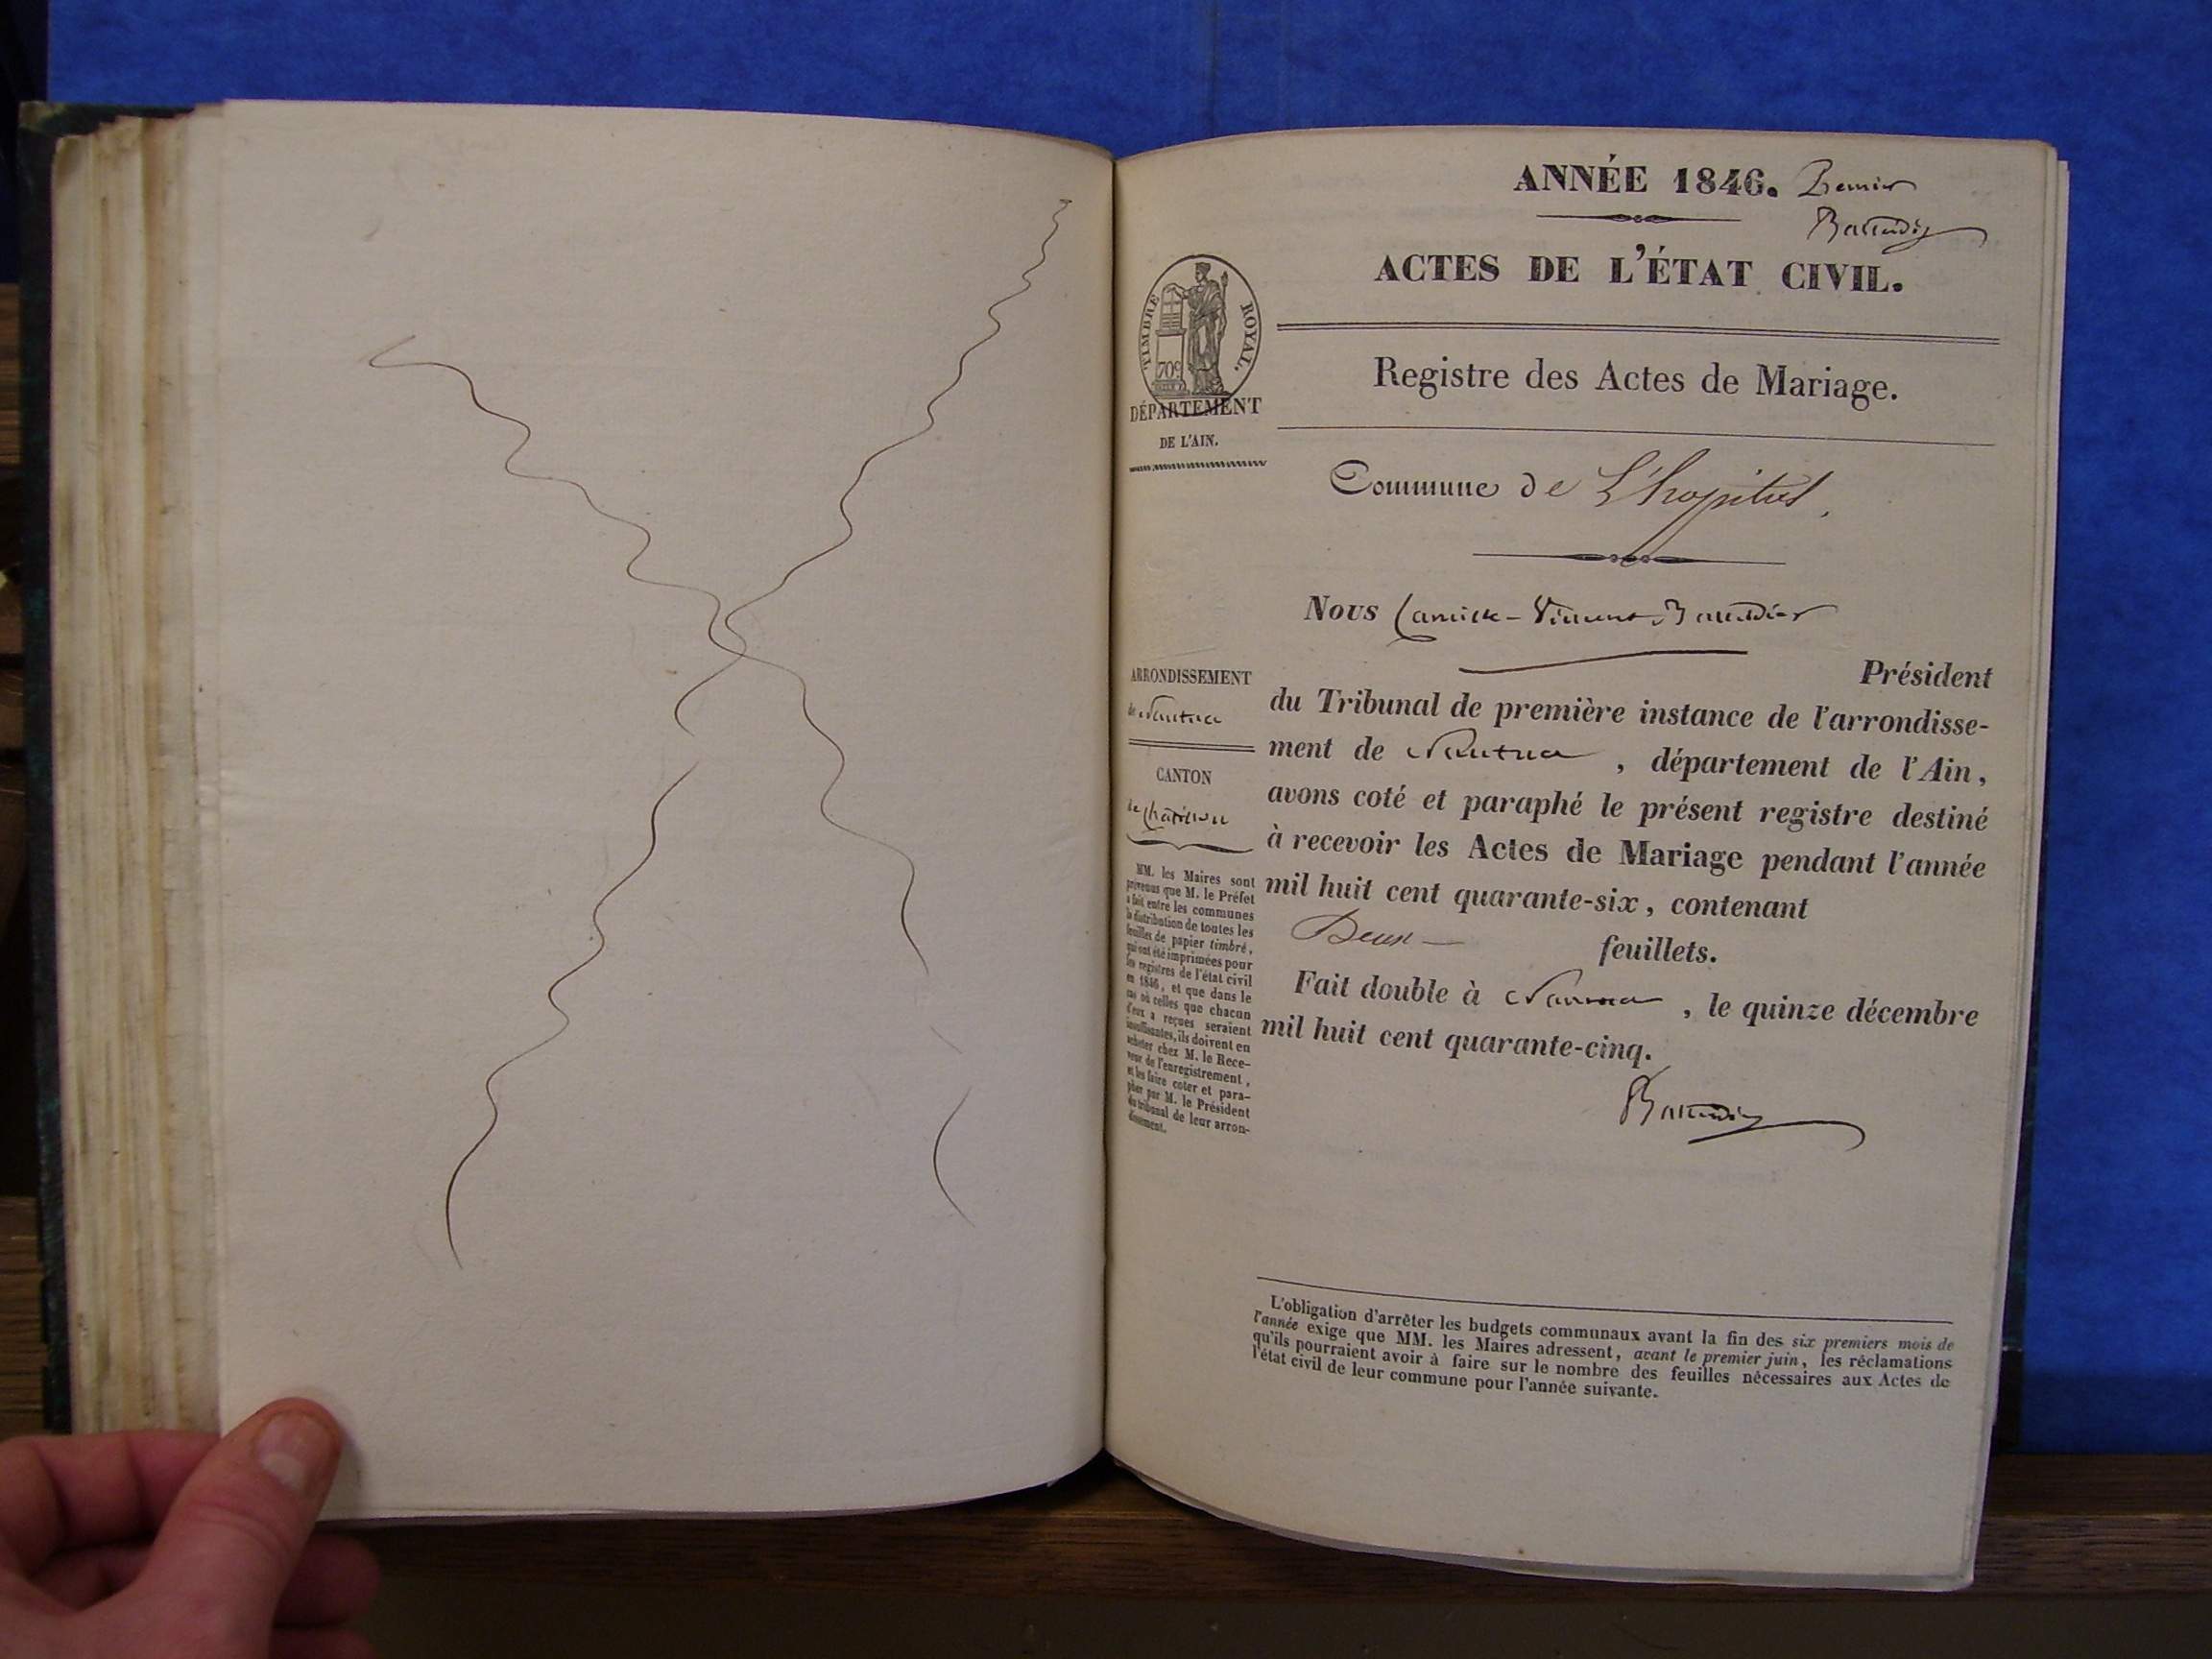 ANNÉE 1846. Premier
ACTES DE L'ÉTAT CIVIL.
TIMBRE ROYAL.
70c
DÉPARTEMENT
DE L'AIN.
Registre des Actes de Mariage.
Commune de L'hopital,
Nous Camille-Vincent
Président
ARRONDISSEMENT
de Nantua
du Tribunal de première instance de l'arrondisse-
ment de Nantua, département de l'Ain,
CANTON
de Chatillon
avons coté et paraphé le présent registre destiné
à recevoir les Actes de Mariage pendant l'année
mil huit cent quarante-six, contenant
Deux feuillets.
Fait double à Nantua, le quinze décembre
mil huit cent quarante-cinq.
MM. les Maires sont
prévenus que M. le Préfet
a fait entre les communes
la distribution de toutes les
feuilles de papier timbré,
qui ont été imprimées pour
les registres de l'état civil
en 1846, et que dans le
cas où celles que chacun
d'eux a reçues seraient
insuffisantes, ils doivent en
acheter chez M. le Rece-
veur de l'enregistrement,
et les faire coter et para-
pher par M. le Président
du tribunal de leur arron-
dissement.
L'obligation d'arrêter les budgets communaux avant la fin des six premiers mois de
l'année exige que MM. les Maires adressent, avant le premier juin, les réclamations
qu'ils pourraient avoir à faire sur le nombre des feuilles nécessaires aux Actes de
l'état civil de leur commune pour l'année suivante.